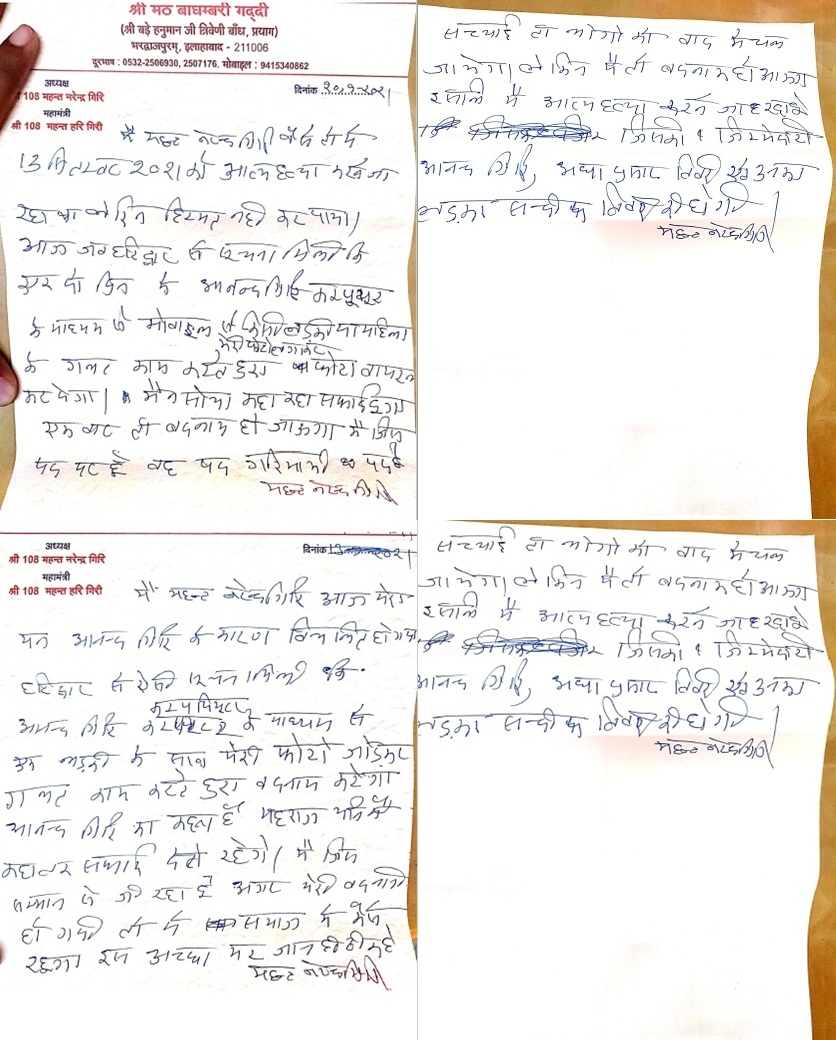 श्री मठ बाघम्बरी गद्दी
(श्री बड़े हनुमान जी त्रिवेणी बाँध, प्रयाग)
भरद्वाजपुरम्, इलाहाबाद - 211006
दूरभाष : 0532-2506930, 2507176, मोबाइल : 9415340862
अध्यक्ष
श्री 108 महन्त नरेन्द्र गिरि
महामंत्री
श्री 108 महन्त हरि गिरी
दिनांक
मै महन्त नरेन्द्र गिरि वैसे तो मै
13 सितम्बर 2021 को आत्म हत्या करने जा
रहा था लेकिन हिम्मत नही कर पाया।
आज जब हरिद्वार से सूचना मिली कि
एक दो दिन मे आनन्द गिरि
के माध्यम से मोबाइल से किसी लड़की या महिला
मेरी फोटो लगाकर
के गलत काम करते हुए फोटो वायरल
कर देगा। मैने सोचा कहा सफाई दूंगा
एक बार तो बदनाम हो जाऊगा मै जिस
पद पर हूँ वह पद गरिमामयी पद है
महन्त नरेन्द्र गिरि
सच्चाई तो लोगो को बाद मे चल
जायेगा। लेकिन मै तो बदनाम हो जाऊगा
इसलिए मै आत्महत्या करने जा रहा हूँ
जिसकी जिम्मेदारी
आनन्द गिरि, अद्या प्रसाद तिवारी एवं उनका
लड़का सन्दीप तिवारी की होगी
महन्त नरेन्द्र गिरि
अध्यक्ष
श्री 108 महन्त नरेन्द्र गिरि
महामंत्री
श्री 108 महन्त हरि गिरी
दिनांक
मै महन्त नरेन्द्र गिरि आज मेरा
मन आनन्द गिरि के कारण विचलित हो गया
हरिद्वार से ऐसी सूचना मिली कि
आनन्द गिरि के माध्यम से
एक लड़की के साथ मेरी फोटो जोड़कर
गलत काम करते हुए बदनाम करेगा
आनन्द गिरि का कहना है महाराज यानि मै
कहा तक सफाई देते रहेगे। मै जिस
सम्मान से जी रहा हूँ अगर मेरी बदनामी
हो गयी तो मै समाज मे कैसे
रहूगा इस अच्छा मर जाना ही ठीक है
महन्त नरेन्द्र गिरि
सच्चाई तो लोगो को बाद मे चल
जायेगा। लेकिन मै तो बदनाम हो जाऊगा
इसलिए मै आत्महत्या करने जा रहा हूँ
जिसकी जिम्मेदारी
आनन्द गिरि, अद्या प्रसाद तिवारी एवं उनका
लड़का सन्दीप तिवारी की होगी
महन्त नरेन्द्र गिरि